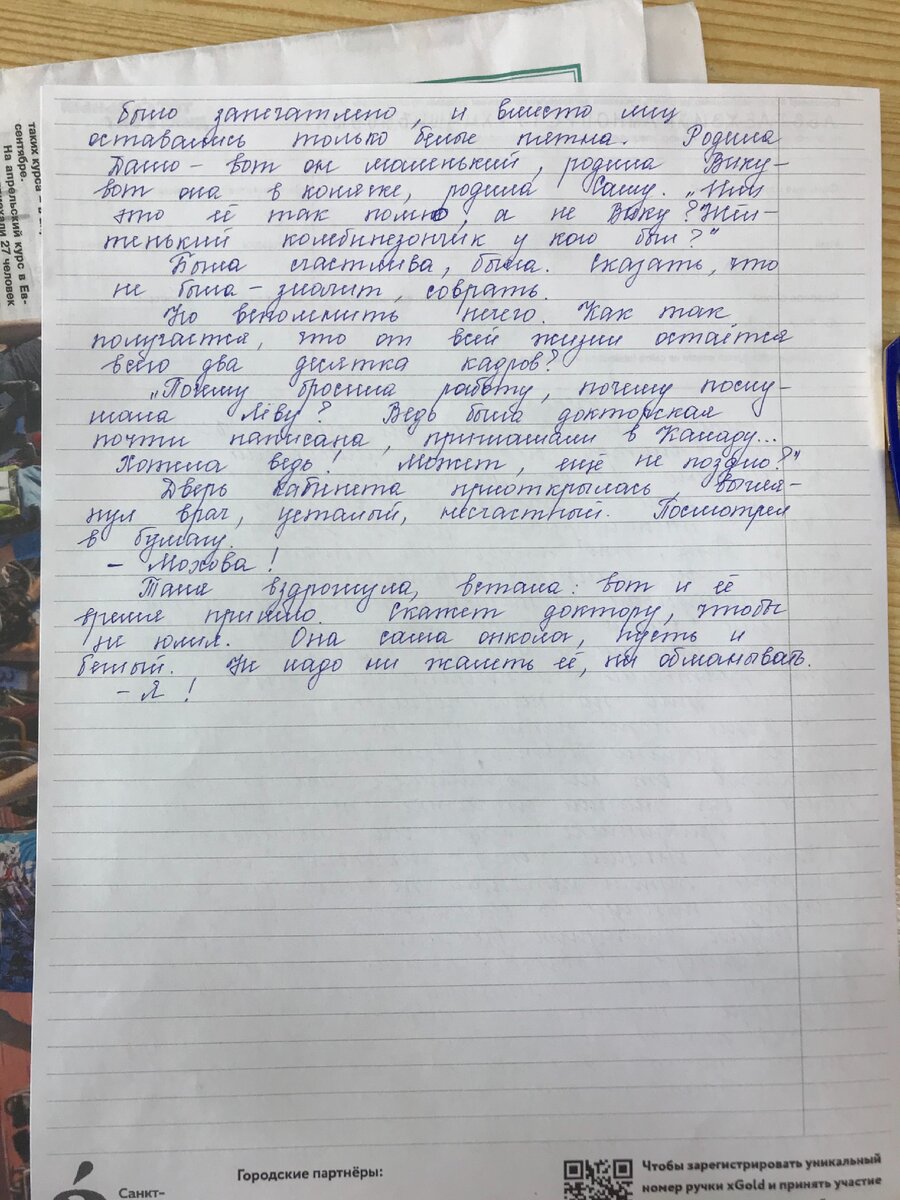 таких курса – в
сентябре.
На апрельский курс в Ев-
ехали 27 человек
было запечатлено, и вместо лиц
оставались только белые пятна. Родила
Даню – вот он маленький, родила Вику –
вот она в коляске, родила Сашу. „Или
это её так помню, а не Вику? Жёл-
тенький комбинезончик у кого был?"
Была счастлива, была. Сказать, что
не была – значит, соврать.
Но вспомнить нечего. Как так
получается, что от всей жизни остаётся
всего два десятка кадров?
„Почему бросила работу, почему послу-
шала Лёву? Ведь была докторская
почти написана, приглашали в Канаду...
Хотила ведь! Может, ещё не поздно?"
Дверь кабинета приоткрылась выгля-
нул врач, усталый, несчастный. Посмотрел
в бумагу.
– Мохова!
Таня вздрогнула, встала: вот и её
время пришло. Скажет доктору, чтобы
не юлил. Она сама онколог, пусть и
бывший. Не надо ни жалеть её, ни обманывать.
– Я!
Санкт-
Городские партнёры:
Чтобы зарегистрировать уникальный
номер ручки xGold и принять участие